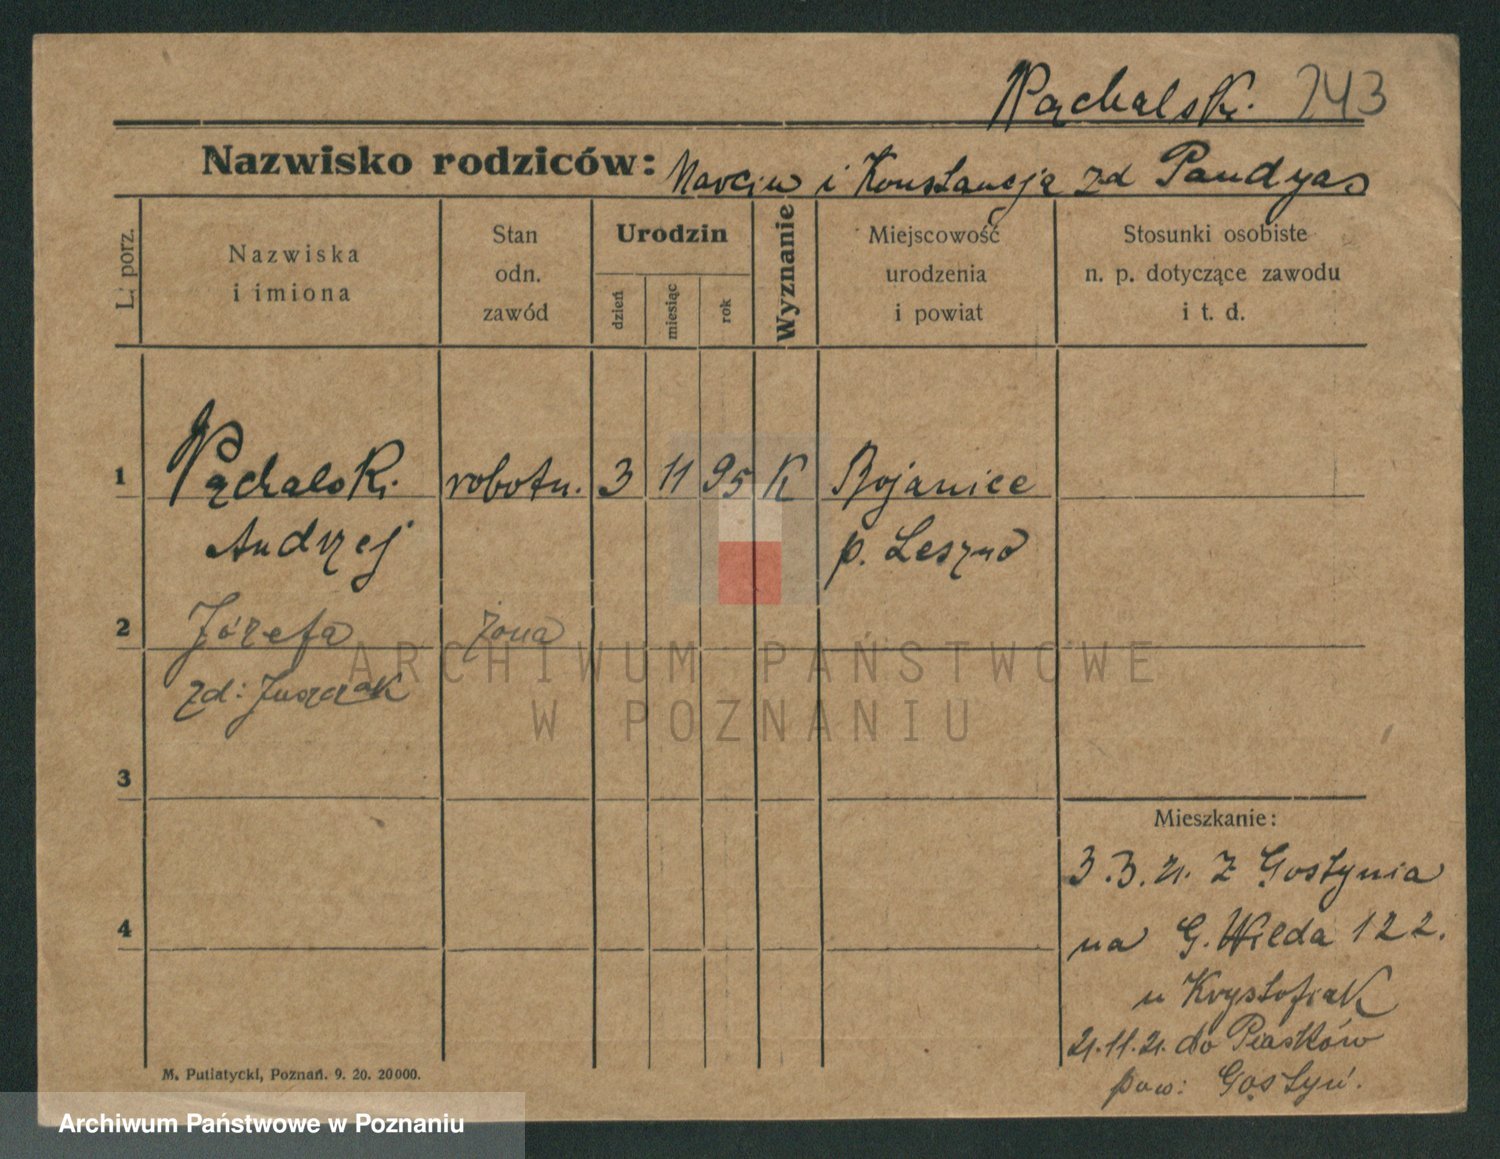 Pąchalski. 243
Nazwisko rodziców: Marcin i Konstancja zd Pandyas
L. porz.
Nazwiska
i imiona
Stan
odn.
zawód
Urodzin
dzień
miesiąc
rok
Wyznanie
Miejscowość
urodzenia
i powiat
Stosunki osobiste
n. p. dotyczące zawodu
i t. d.
1 Pąchalski robotn. 3 11 95 K Bojanice
Andrzej p. Leszno
2 Józefa żona
zd: Juszczak
3
4
Mieszkanie:
3.3.21. z Gostynia
na G. Wilda 122.
u Krystofiak
21.11.21. do Piasków
pow: Gostyń.
M. Putiatycki, Poznań. 9. 20. 20000.
ARCHIWUM PAŃSTWOWE
W POZNANIU
Archiwum Państwowe w Poznaniu